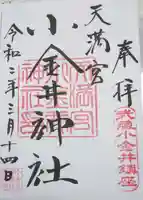 奉拝
武蔵小金井鎮座
天満宮
小金井神社
令和二年三月十四日